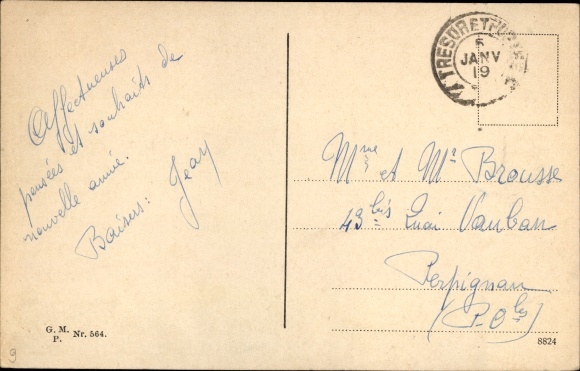 Affectueuses
pensées et souhaits de
nouvelle année.
Baisers: Jean
TRESOR ET POSTES
5
JANV
19
Mme et Mr Brousse
43 bis Quai Vauban
Perpignan
(P-Oles)
G. M.
P. Nr. 564.
8824
9